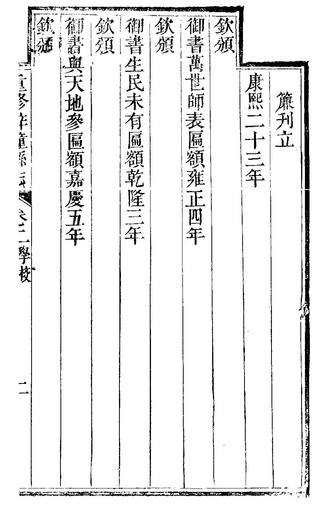 簾刊立
康熙二十三年
欽頒
御書萬世師表匾額雍正四年
欽頒
御書生民未有匾額乾隆三年
欽頒
御書與天地參匾額嘉慶五年
欽頒
重修 縣志 卷二 學校 二